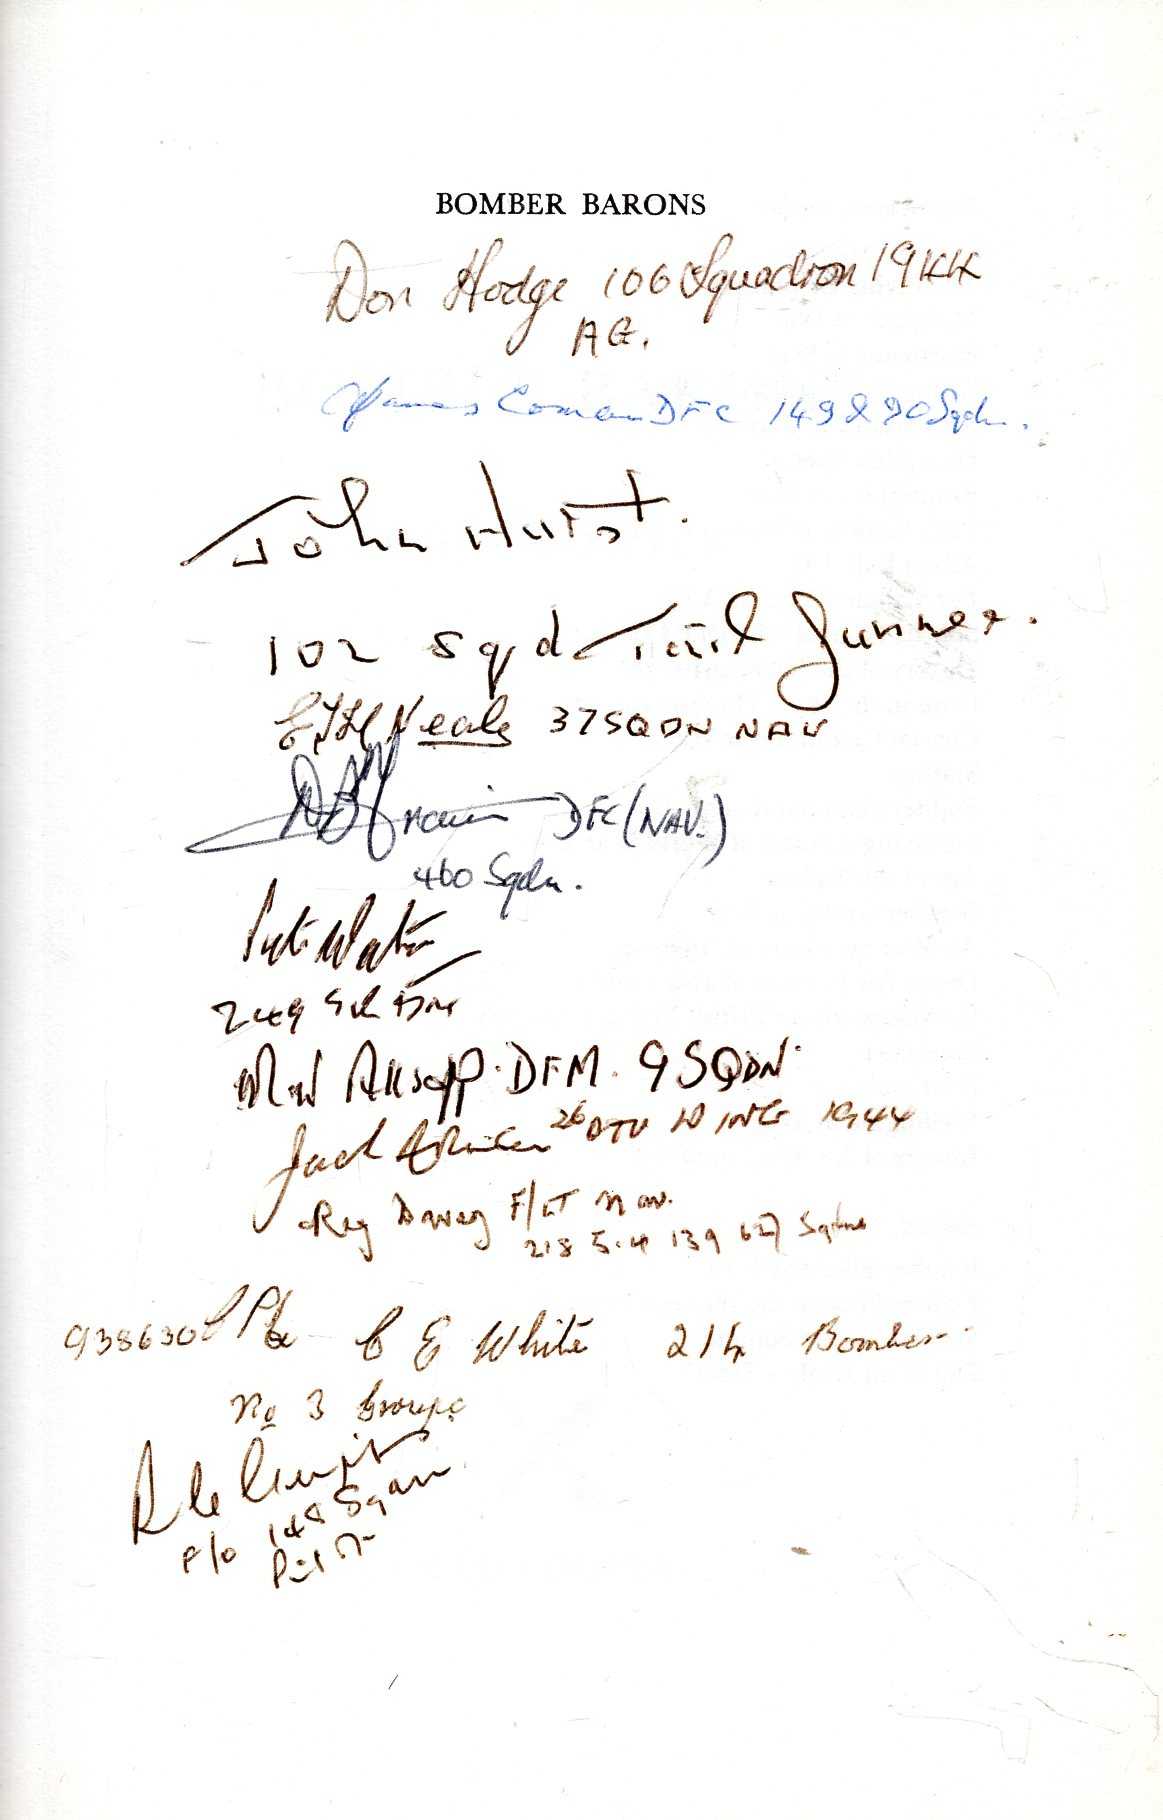 BOMBER BARONS
Don Hodge 106 Squadron 1944
AG.
James Coman DFC 149 & 90 Sqdn.
John Hurst.
102 Sqd Tail Gunner.
Neale 37 SQDN NAV
DFC (NAV.)
460 Sqdn.
249
M W Allsopp. DFM. 9 SQDN.
Jack 26 OTU WING 1944
Reg Davey F/LT Nav.
218 139 627 Sqdns
938630 C E White 214 Bomber
No 3 Group
R
P/O 148 Sqdn
Pilot